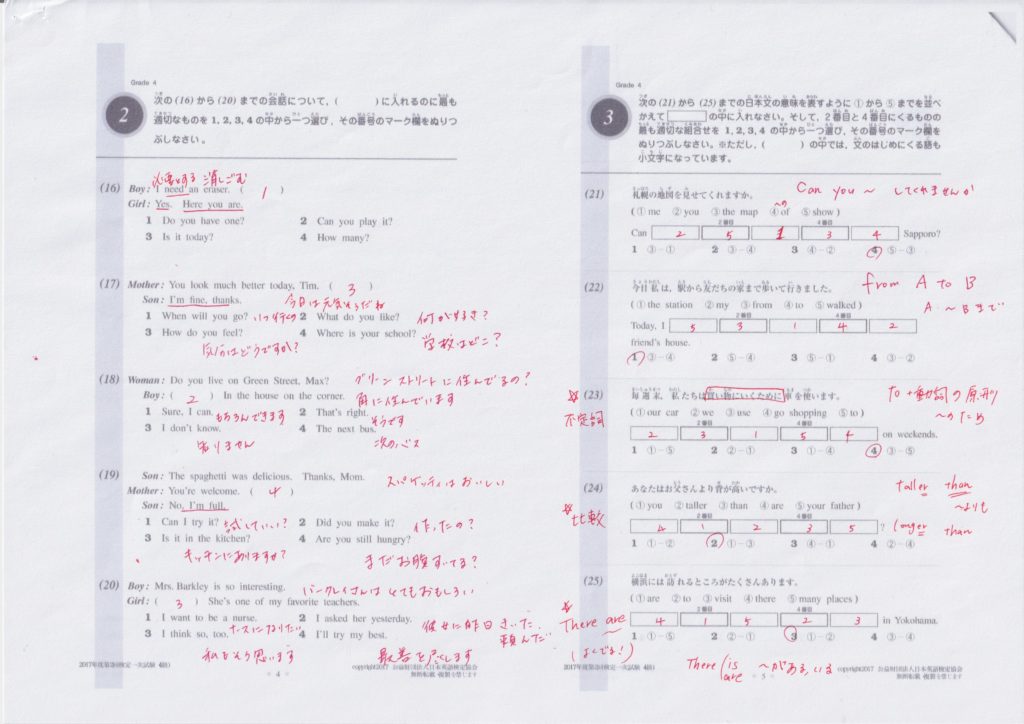 Grade 4
2
次の(16)から(20)までの会話について,( )に入れるのに最も
適切なものを1, 2, 3, 4の中から一つ選び,その番号のマーク欄をぬりつ
ぶしなさい。
必要とする 消しごむ
(16) Boy: I need an eraser. ( 1 )
Girl: Yes. Here you are.
1 Do you have one? 2 Can you play it?
3 Is it today? 4 How many?
(17) Mother: You look much better today, Tim. ( 3 )
Son: I'm fine, thanks. 今日は元気そうだね
1 When will you go? いつ行くの 2 What do you like? 何が好き?
3 How do you feel? 4 Where is your school? 学校はどこ?
気分はどうですか?
(18) Woman: Do you live on Green Street, Max? グリーンストリートに住んでるの?
Boy: ( 2 ) In the house on the corner. 角に住んでいます
1 Sure, I can. もちろんできます 2 That's right. そうです
3 I don't know. 4 The next bus.
知りません 次のバス
(19) Son: The spaghetti was delicious. Thanks, Mom. スパゲッティはおいしい
Mother: You're welcome. ( 4 )
Son: No, I'm full.
1 Can I try it? 試していい? 2 Did you make it? 作ったの?
3 Is it in the kitchen? 4 Are you still hungry?
キッチンにありますか? まだお腹すいてる?
(20) Boy: Mrs. Barkley is so interesting. バークレイさんはとてもおもしろい
Girl: ( 3 ) She's one of my favorite teachers.
1 I want to be a nurse. 2 I asked her yesterday. 彼女に昨日きいた,
頼んだ
3 I think so, too. ナースになりたい 4 I'll try my best.
私もそう思います 最善を尽くします
2017年度第2回検定一次試験(4級) copyright2017 公益財団法人日本英語検定協会
無断転載・複製を禁じます
4
Grade 4
3
次の(21)から(25)までの日本文の意味を表すように①から⑤までを並べ
かえて の中に入れなさい。そして,2番目と4番目にくるものの
最も適切な組合せを1, 2, 3, 4の中から一つ選び,その番号のマーク欄を
ぬりつぶしなさい。※ただし,( )の中では,文のはじめにくる語も
小文字になっています。
(21) 札幌の地図を見せてくれますか。 Can you ~ してくれませんか
~の
(① me ② you ③ the map ④ of ⑤ show)
2番目 4番目
Can 2 5 1 3 4 Sapporo?
1 ③-① 2 ⑤-④ 3 ④-② 4 ⑤-③
(22) 今日私は,駅から友だちの家まで歩いて行きました。 from A to B
(① the station ② my ③ from ④ to ⑤ walked) A ~ Bまで
2番目 4番目
Today, I 5 3 1 4 2
friend's house.
1 ③-④ 2 ⑤-④ 3 ⑤-① 4 ③-②
☆ 不定詞
(23) 毎週末,私たちは買い物にいくために車を使います。 to+動詞の原形
~のため
(① our car ② we ③ use ④ go shopping ⑤ to)
2番目 4番目
2 3 1 5 4 on weekends.
1 ①-⑤ 2 ②-① 3 ①-④ 4 ③-⑤
☆ 比較
(24) あなたはお父さんより背が高いですか。 taller than
~よりも
(① you ② taller ③ than ④ are ⑤ your father)
2番目 4番目
4 1 2 3 5 ? longer than
1 ①-② 2 ①-③ 3 ④-① 4 ②-④
(25) 横浜には訪れるところがたくさんあります。
(① are ② to ③ visit ④ there ⑤ many places)
☆ There are ~
(よくでる!)
2番目 4番目
4 1 5 2 3 in Yokohama.
1 ④-⑤ 2 ②-① 3 ①-② 4 ⑤-③
There (is
are ~がある,いる
2017年度第2回検定一次試験(4級) copyright2017 公益財団法人日本英語検定協会
無断転載・複製を禁じます
5